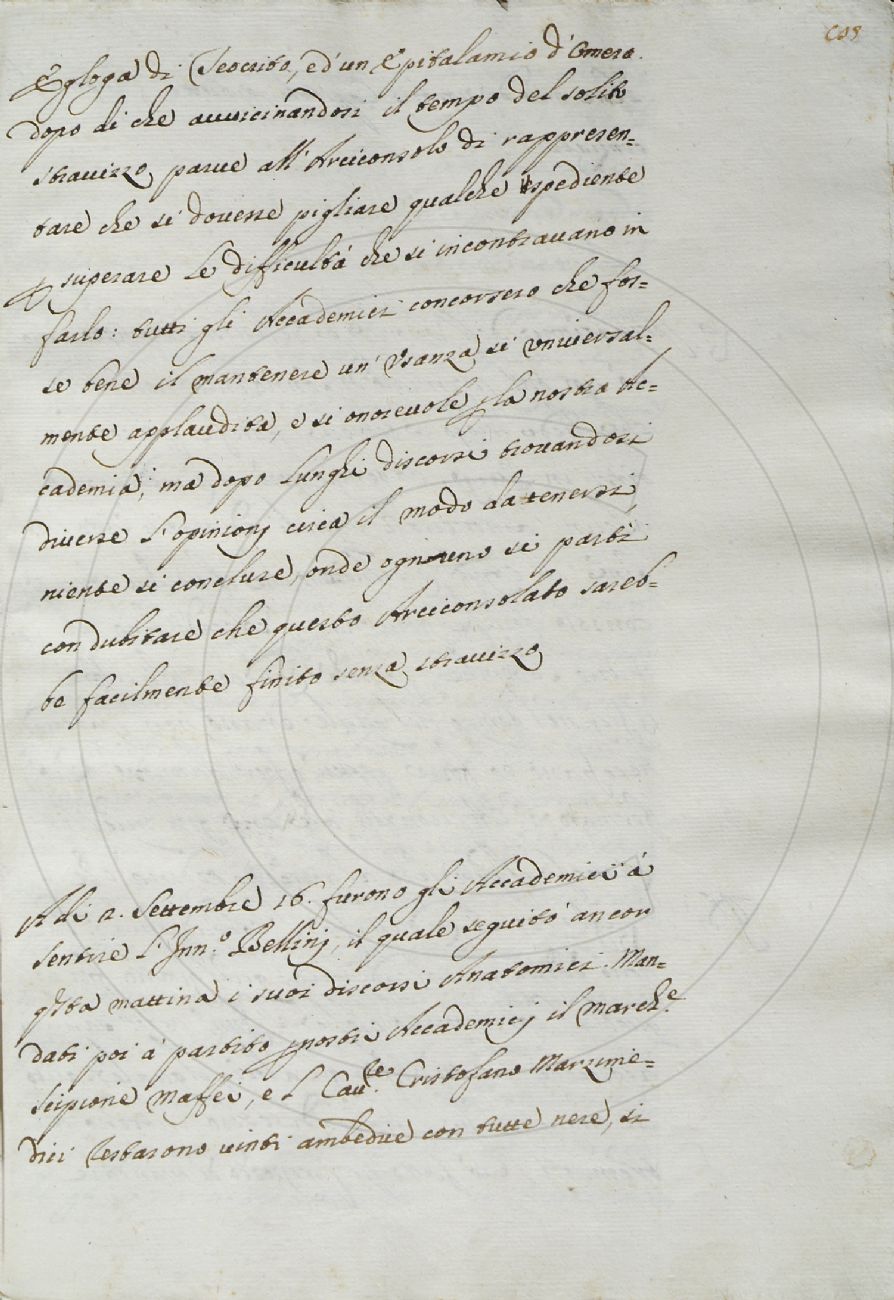 Egloga di Teocrito, e d'un Epitalamio d'Omero.
dopo di che avvicinandosi il tempo del solito
stravizzo, parve all' Arciconsolo di rappresen=
tare che si dovesse pigliare qualche espediente
p superare le difficultà che si incontravano in
farlo: tutti gli Accademici concorsero che fos=
se bene il mantenere un' usanza sì universal=
mente applaudita, e sì onorevole p la nostra Ac=
cademia; ma dopo lunghi discorsi trovandosi
diverse l'opinionj circa il modo da tenersi,
niente si concluse, onde ognuno si partì
con dubitare che questo Arciconsolato sareb=
be facilmente finito senza stravizzo
Adi 2. Settembre 16. furono gli Accademici à
sentire l' Inn.º Bellinj, il quale seguitò ancor
qsta mattina i suoi discorsi Anatomici. Man=
dati poi à partito p nostri Accademicj il March.e
Scipione Maffei, e l Cav.re Cristofano Marzime=
dici restarono vinti ambedue con tutte nere, si